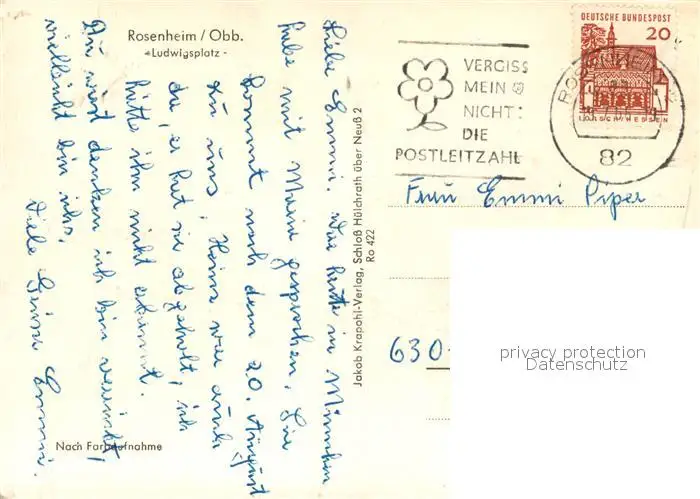 Rosenheim / Obb.
-Ludwigsplatz-
Liebe Emmi. War heute in München
habe mit Marie gesprochen, Sie
kommt nach dem 20. August
zu uns, Heinz war auch
da, er hat sie abgeholt, ich
hätte ihn nicht erkannt.
Du wirst denken ich bin verrückt,
vielleicht bin ichs,
Viele Grüsse Emmi.
Nach Farbaufnahme
Jakob Krapohl-Verlag, Schloß Hülchrath über Neuß 2
Ro 422
VERGISS
MEIN
NICHT:
DIE
POSTLEITZAHL
DEUTSCHE BUNDESPOST
20
LORSCH/HESSEN
ROSENHEIM
82
Frau Emmi Piper
630
privacy protection
Datenschutz